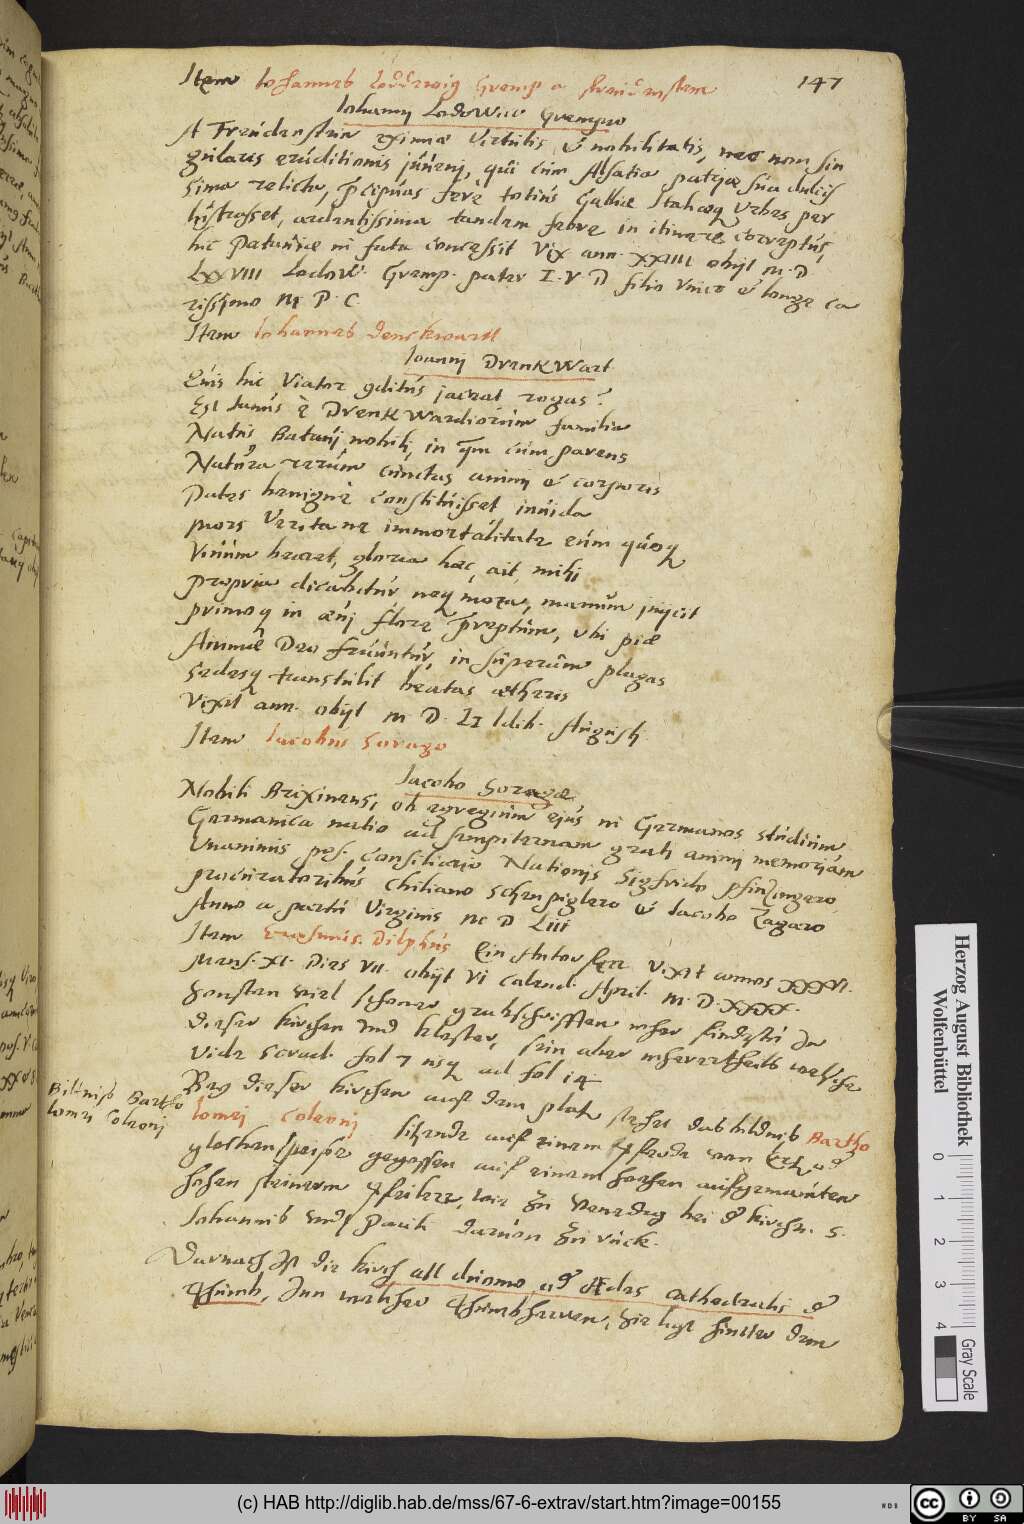 147
Item Iohannes Ludwig Gremp a freudenstein
Iohanni Lodowico Grempio
A Freudenstein eximiæ virtutis & nobilitatis, nec non sin
gularis eruditionis iuueni, qui cum Alsatia patria sua dulcis
sima relicta, p̄cipuas ferè totius Galliæ Italiæq urbes per
lustrasset, ardentissima tandem febre in itinere correptus,
hic Patauij in fata concessit Vix ann. XXIIII obijt M. D.
LXXVIII Lodow. Gremp. pater I. V. D filio vnico & longe ca
rissimo M. P. C.
Item Iohannes Denckwardt
Ioanni Drenkwart
Quis hic viator gditus iaceat rogas?
Est hunus è Drenkwardiorum familia
Natus Batauij nobili, in qm cum parens
Natura rerum cunctas animi & corporis
Dotes benignè constituisset inuida
mors veritane immortalitate eum quoq
Viuum bearet, gloria hæc, ait, mihi
propria dicabitur neq mora, manum inijcit
primoq in æui flore p̄reptum, vbi piæ
Animæ Deo fruuntur, in superum plagas
Sedesq transtulit beatas ætheris
Vixit ann. obijt M. D. LI Idib. Augusti.
Item Iacobus Sorago
Iacobo Soragæ
Nobili Brixinensi, ob egregium eius in Germanos studium
Germanica natio ad sempiternam grati animi memoriam
Vnanimis pos. Consiliario Nationis Sigfrido Pfinzingero
procuratoribus Chiliano Schenpiglero & Iacobo Zagaro
Anno a partu Virginis M D LIII
Item Erasmus Dilphus Ein Antorffer vixit annos XXXVI.
Mens. XI. Dies VII. obijt VI calend. April. M. D. XXXX.
Sonsten viel schöner grabschrifften mher findestu In
dieser kirchen vnd kloster, sein aber mherertheils welsche
Vide Scrad. fol 7 usq ad fol 14
Bey dieser kirchen auf dem platz stehet das bildnis Bartho
lomei Coleonj sitzende auf einem pferde von Ertz od
glockenspeise gegossen auf einem hochen aufgemaurten
hohen steinern pfeiler, wie zu Venedig bei d kirch. S.
Iohannis vnd Pauli dauon zu rück.
Bildnis Bartho
lomei Coleonj
Darnach ist die kirch all duomo, od Ædes cathedralis d
Thumb, Inn welcher Thumbherren, hie ligt hinder dem
Herzog August Bibliothek
Wolfenbüttel
0 1 2 3 4
Gray Scale
(c) HAB http://diglib.hab.de/mss/67-6-extrav/start.htm?image=00155
WDB
cc BY SA